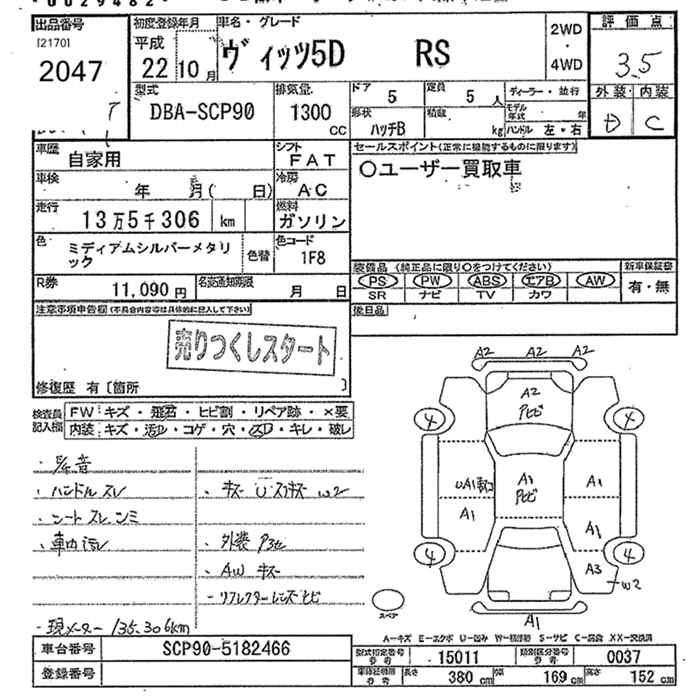 出品番号
[2170]
2047
初度登録年月
平成
22年10月
車名・グレード
ヴィッツ5D RS
2WD
・
4WD
評価点
3.5
外装 内装
D C
型式
DBA-SCP90
排気量
1300
CC
ドア
5
定員
5人
形状
ハッチB
積載
kg
ディーラー・並行
モデル年式 年
ハンドル 左・右
車歴
自家用
シフト
FAT
セールスポイント(正常に機能するものに限ります)
〇ユーザー買取車
車検
年 月( 日)
冷房
AC
走行
13万5千306 km
燃料
ガソリン
色
ミディアムシルバーメタリック
色替
色コード
1F8
装備品(純正品に限り〇をつけてください)
新車保証書
PS PW ABS エアB AW
有・無
SR ナビ TV カワ
R券
11,090円
名変通知期限
月 日
後日品
注意事項申告欄(不具合内容等は具体的に記入して下さい)
売りつくしスタート
修復歴 有〔箇所 〕
検査員記入欄
FW:キズ・飛石・ヒビ割・リペア跡・×要
内装:キズ・汚レ・コゲ・穴・スレ・キレ・破レ
・ハンドル スレ
・シート スレ シミ
・車内 汚レ
・キズ U スリキズ W2
・外装
・AW キズ
・リフレクターレンズ ヒビ
・現メーター 135,306km
A2 A2 A2
A2
4 4
A1
A1
A1
A1
A3
W2
4 4
A1
スペア
A-キズ E-エクボ U-凹み W-補修跡 S-サビ C-腐食 XX-交換済
車台番号
SCP90-5182466
登録番号
型式指定番号 参考
15011
類別区分番号 参考
0037
車検証期限 参考
長さ 380cm 幅 169cm 高さ 152cm